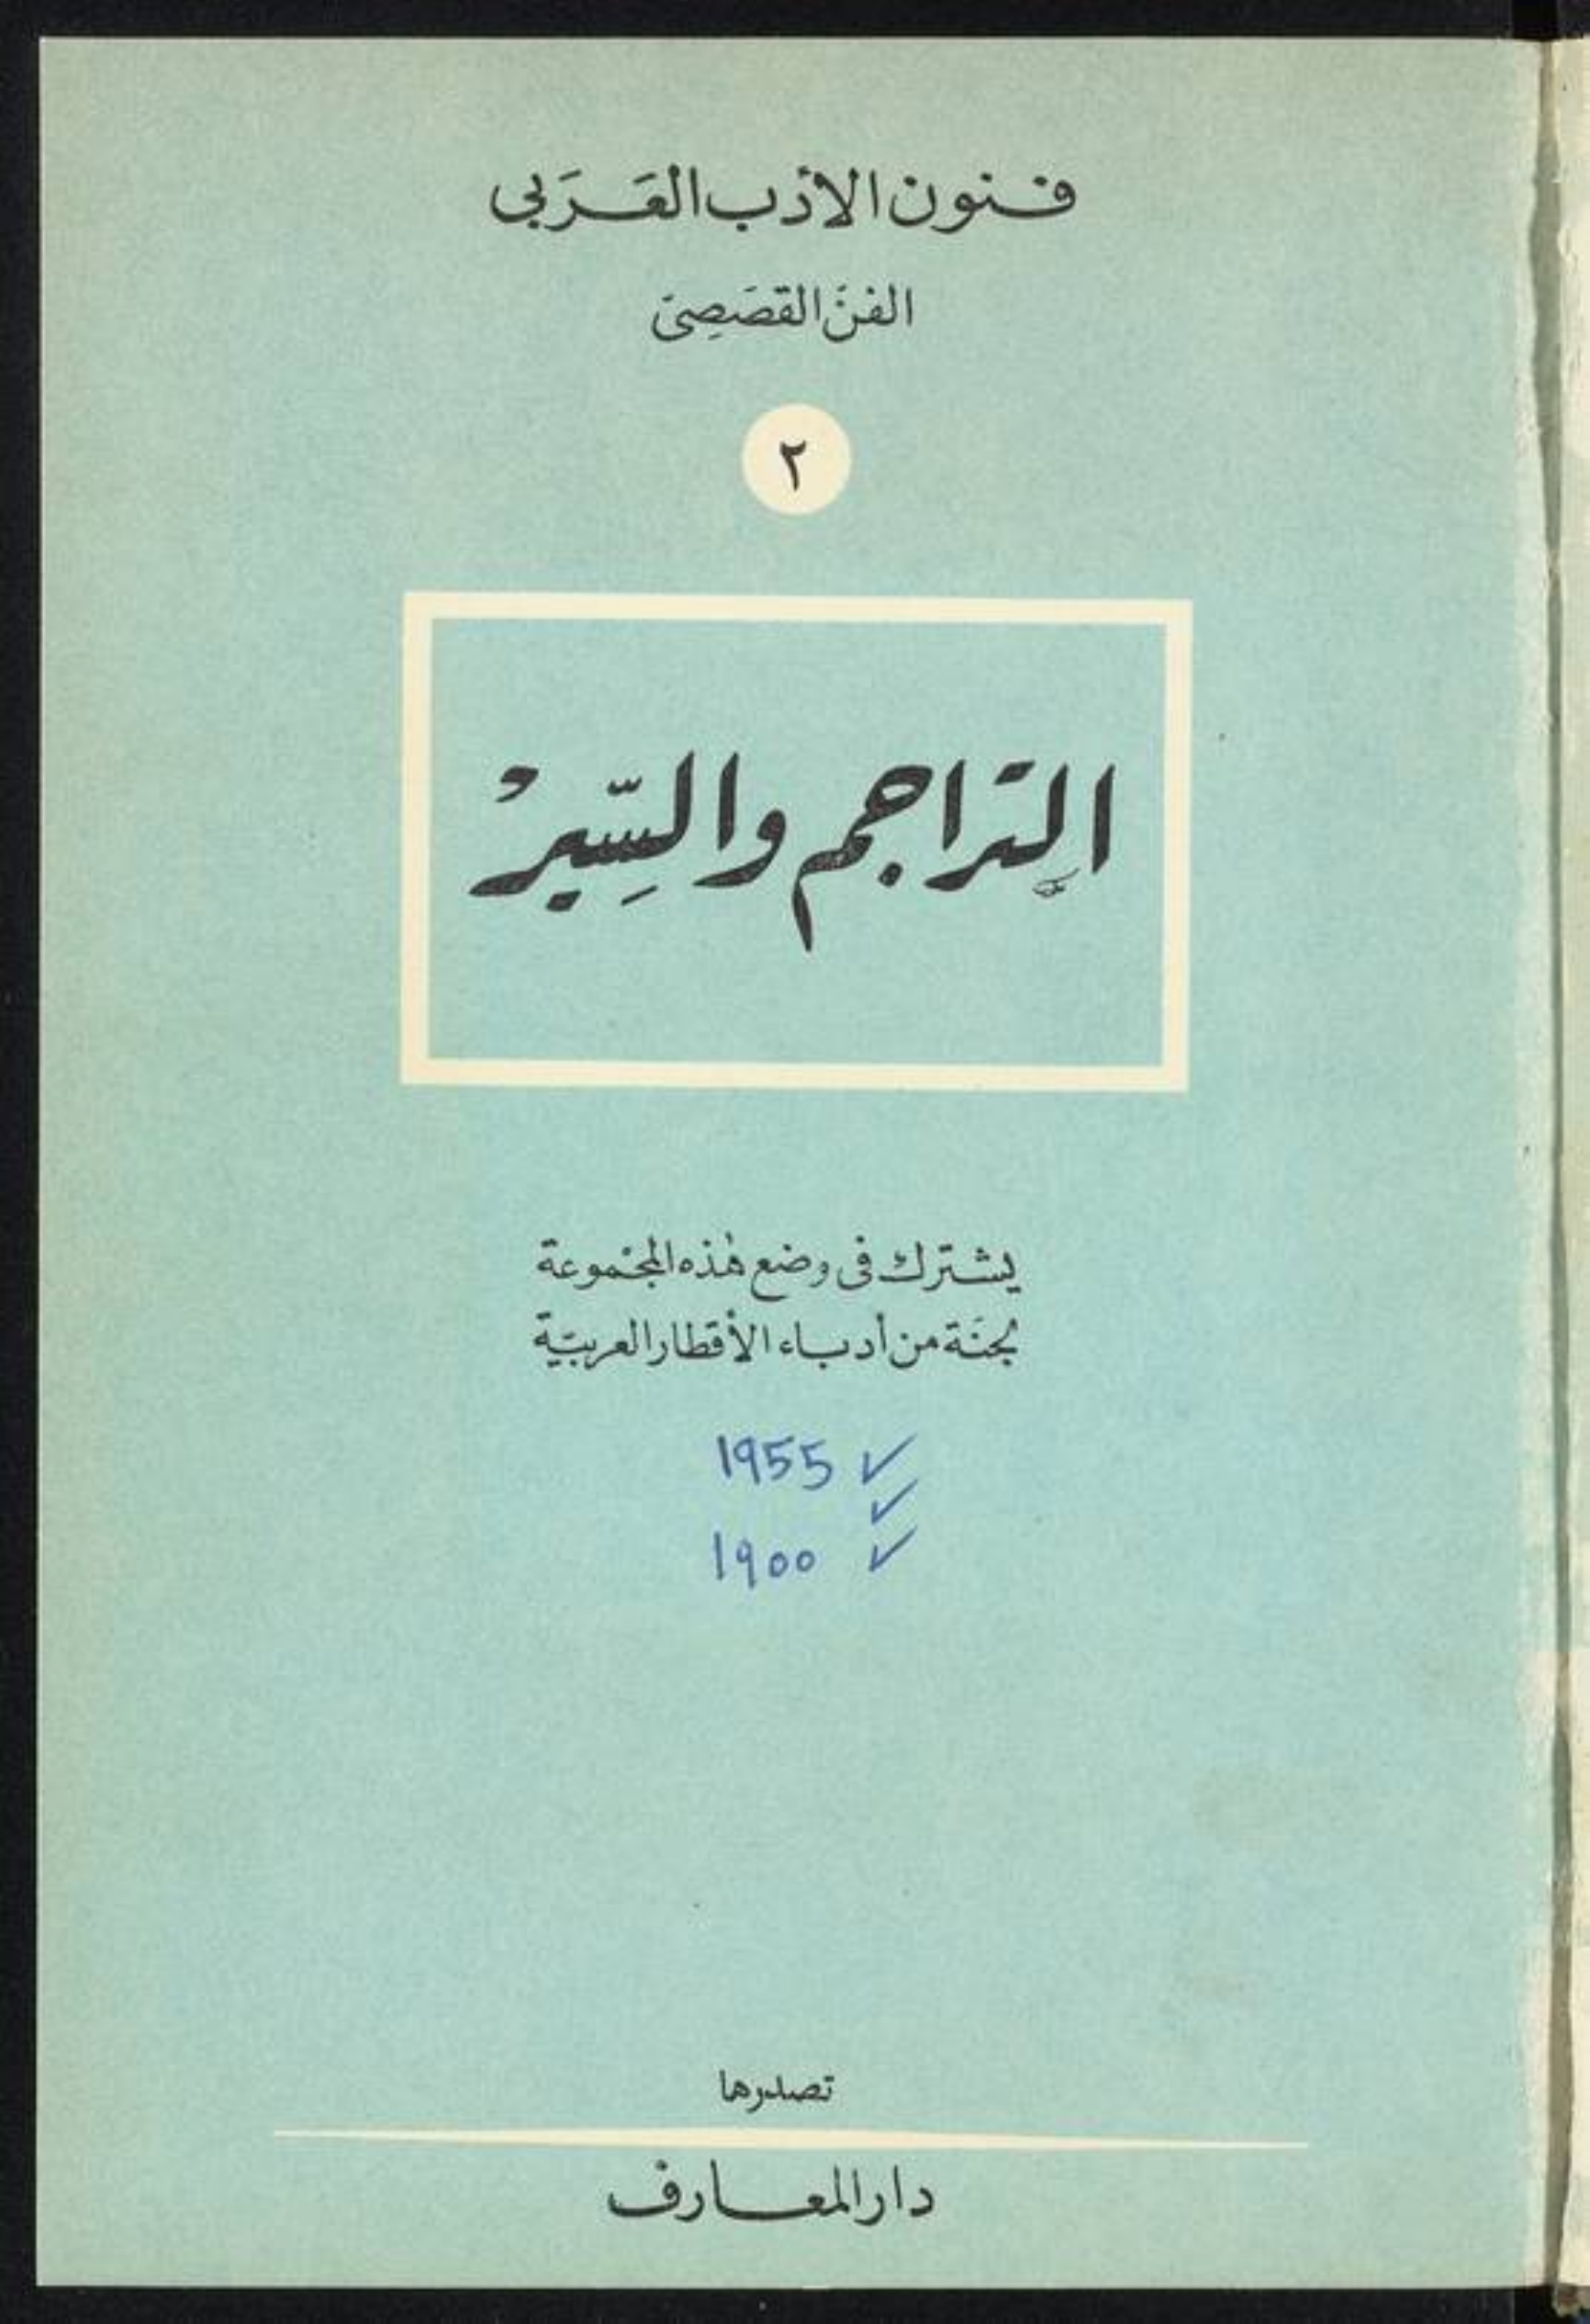 فنون الأدب العَرَبى
الفنّ القصَصِىّ
٢
التراجم والسِّيَر
يشترك فى وضع هٰذه المجْموعة
لجنَة من أدباء الأقطار العربيّة
1955 ✓
✓
1900 ✓
تصدرها
دار المعارف